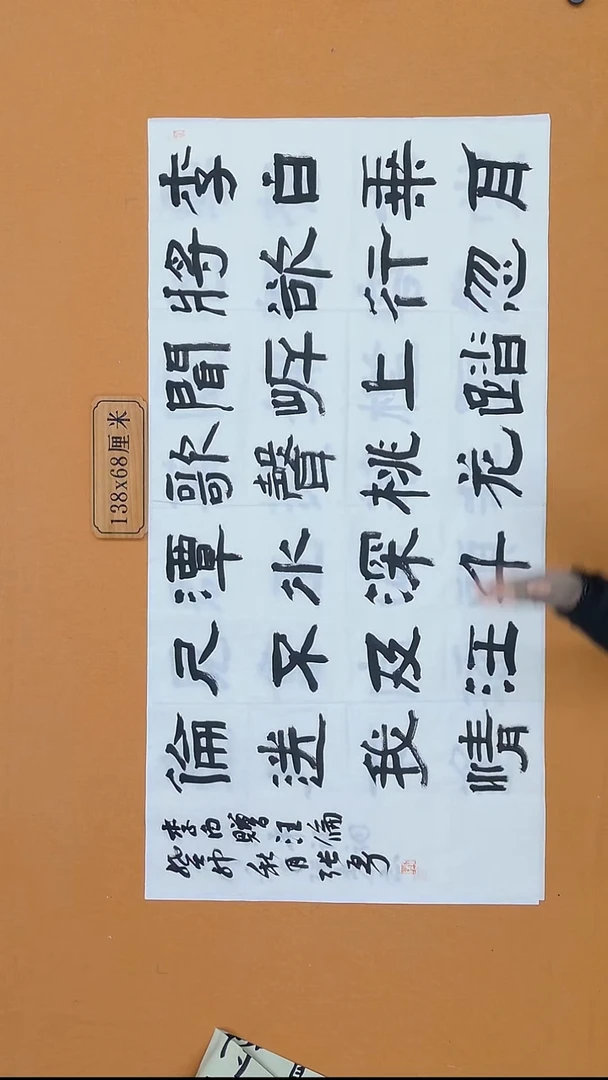 李白乘舟
將欲行忽
聞岸上踏
歌聲桃花
潭水深千
尺不及汪
倫送我情
李白贈汪倫
卯秋月张
138x68厘米